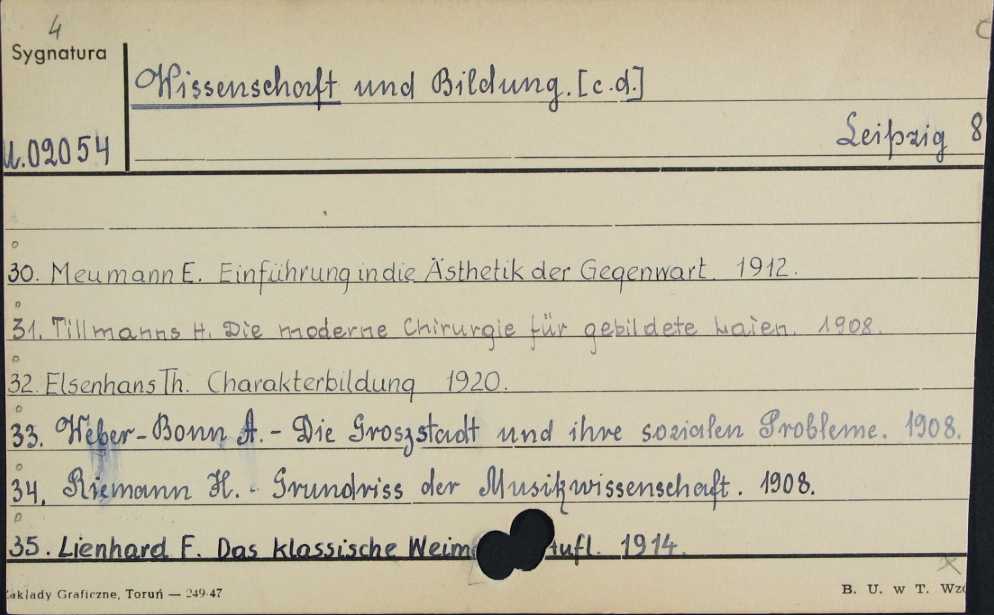 4
Sygnatura
Wissenschaft und Bildung. [c.d.]
Leipzig 8
U.02054
30. Meumann E. Einführung in die Ästhetik der Gegenwart. 1912.
31. Tillmanns H. Die moderne Chirurgie für gebildete Laien. 1908.
32. Elsenhans Th. Charakterbildung 1920.
33. Weber-Bonn A. - Die Groszstadt und ihre sozialen Probleme. 1908.
34. Riemann H. - Grundriss der Musikwissenschaft. 1908.
35. Lienhard F. Das klassische 1914.
Graficzne, Toruń — 249-47
B. U. w T.